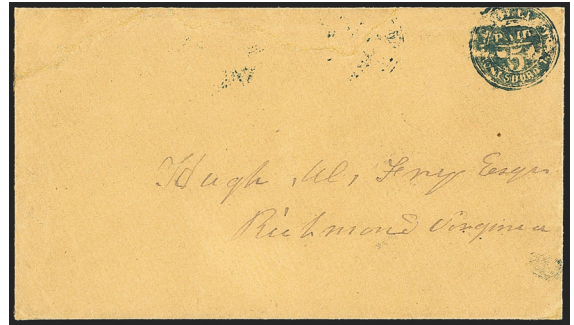 PAID
5
Hugh W, Fry Esqr
Richmond Virginia